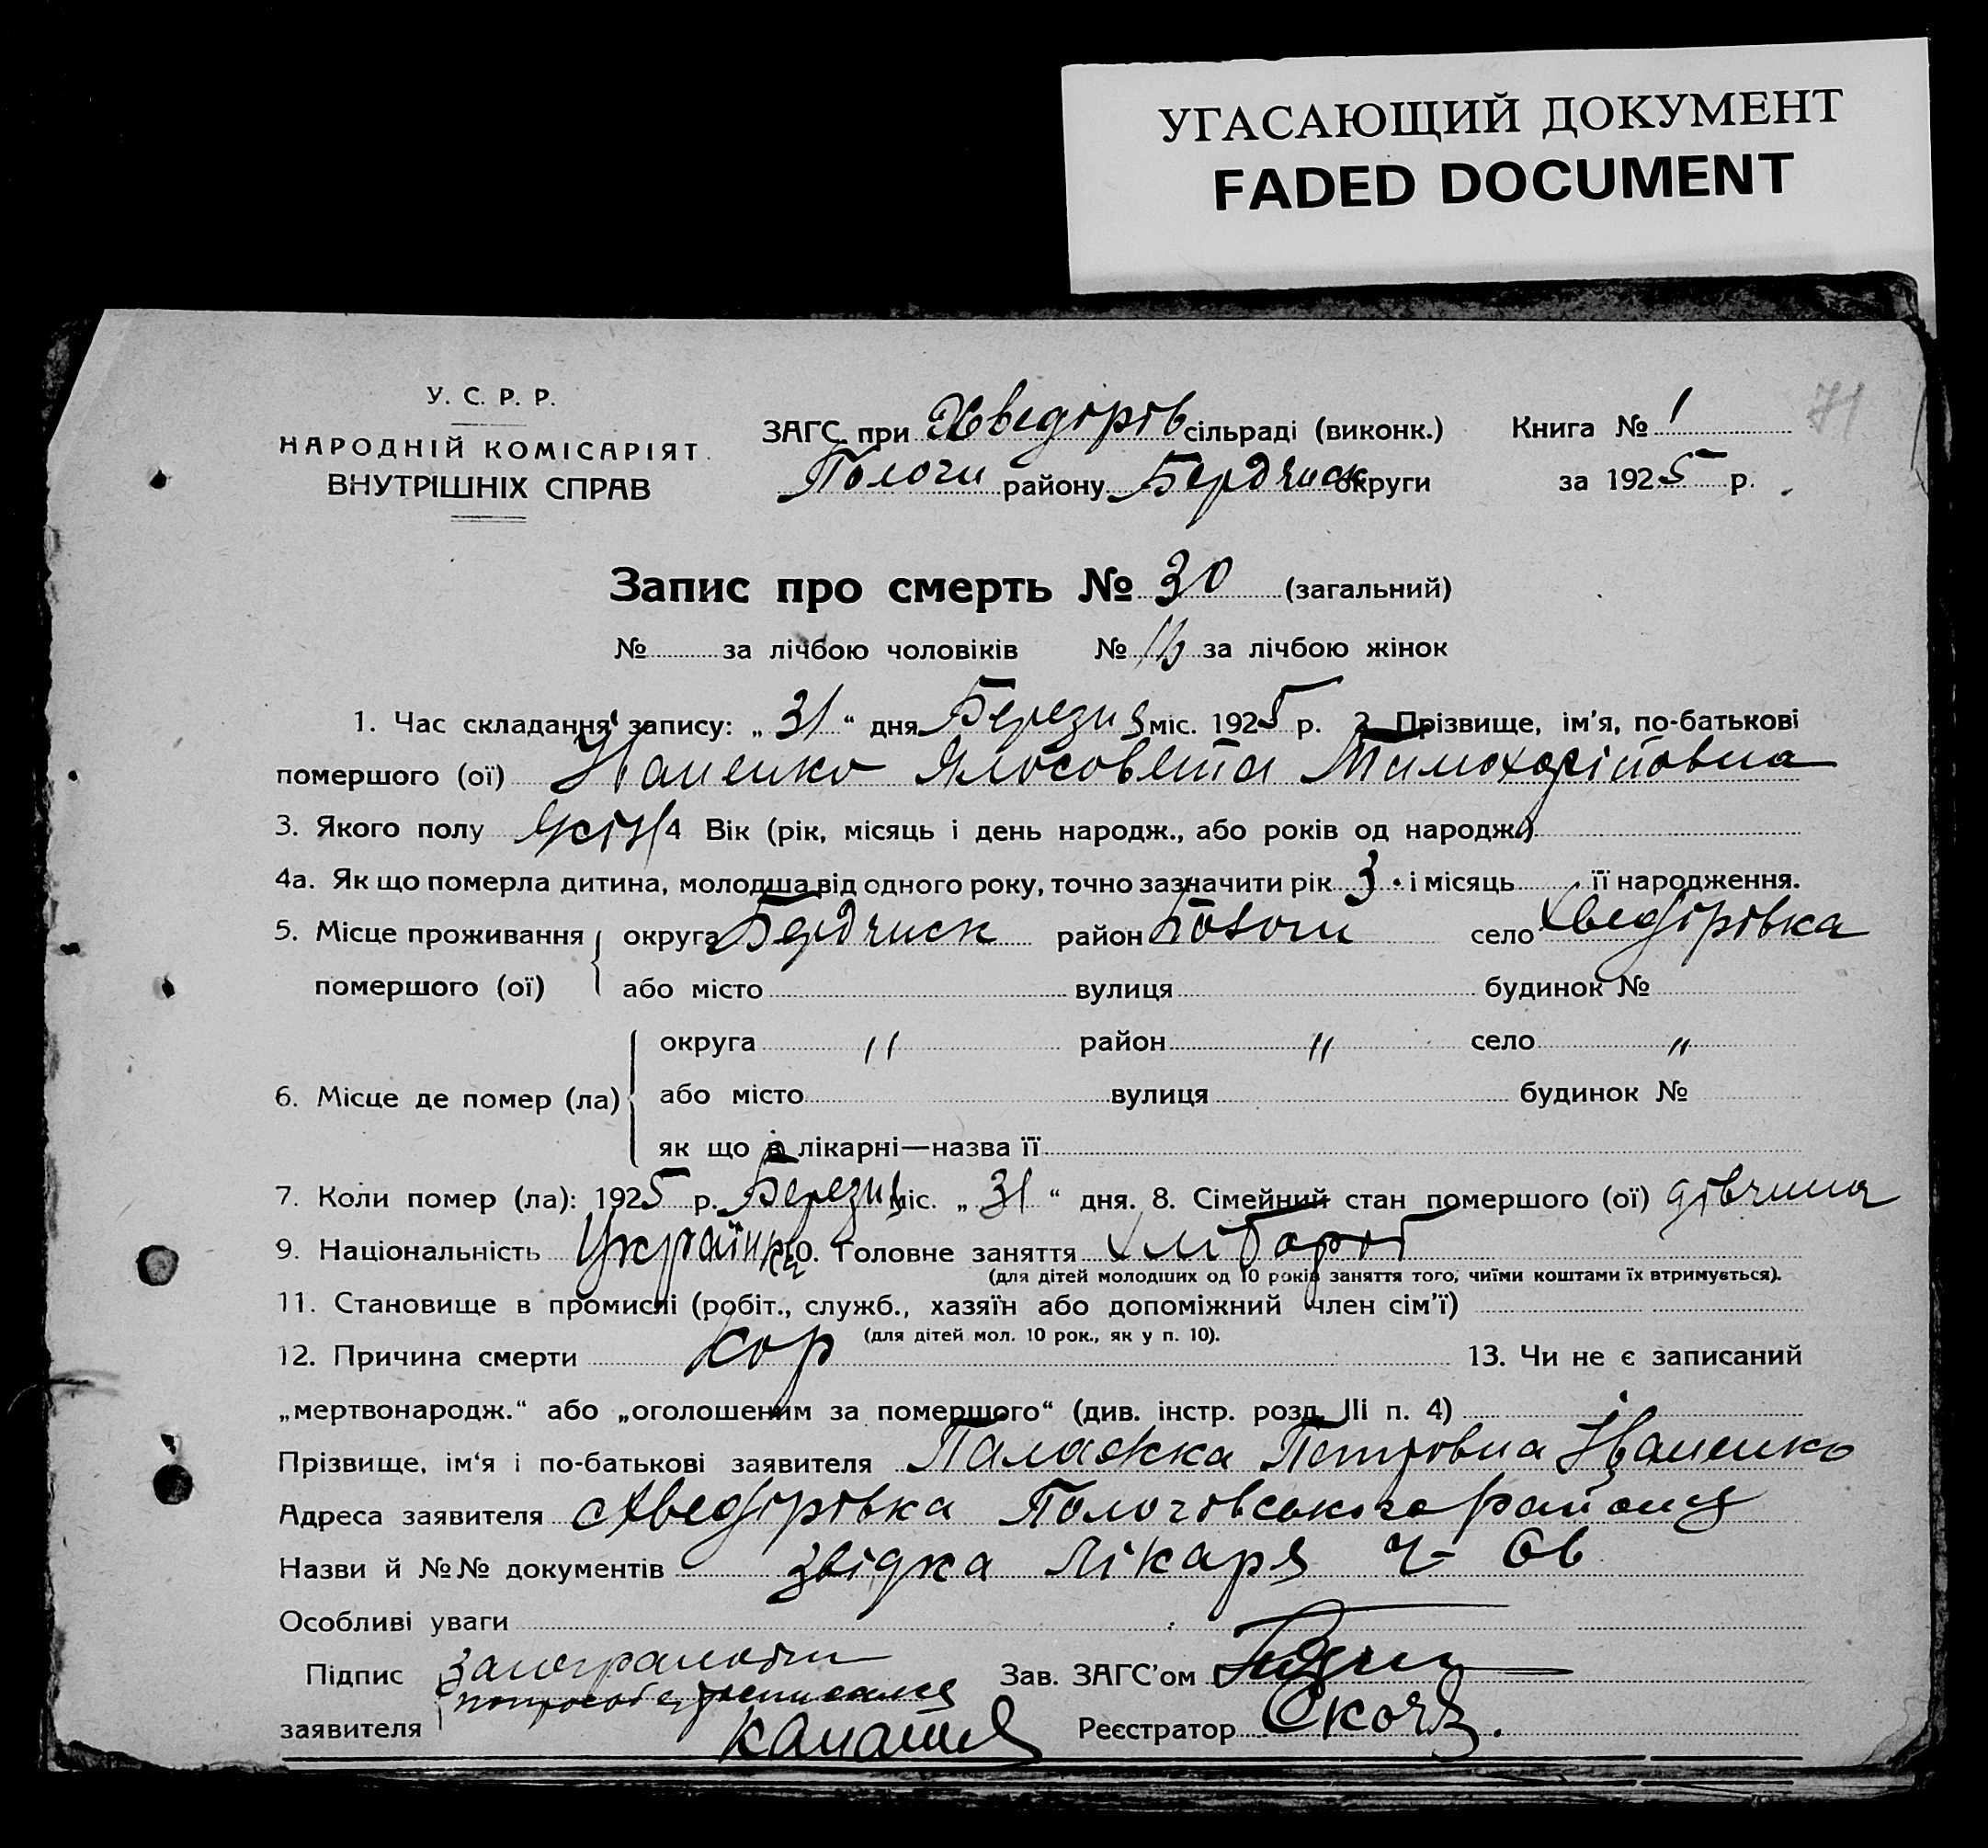 УГАСАЮЩИЙ ДОКУМЕНТ
FADED DOCUMENT
71
У. С. Р. Р.
НАРОДНІЙ КОМІСАРІЯТ
ВНУТРІШНІХ СПРАВ
ЗАГС при Хведірів сільраді (виконк.) Книга № 1
Пологи району Бердянск округи за 1925 р.
Запис про смерть № 30 (загальний)
№ за лічбою чоловіків № за лічбою жінок
1. Час складання запису: „31“ дня Березня міс. 1925 р. 2. Прізвище, ім’я, по-батькові
помершого (ої) Іваненко Ялосовета
3. Якого полу жін 4 Вік (рік, місяць і день народж., або років од народж.)
4а. Як що померла дитина, молодша від одного року, точно зазначити рік 3 і місяць її народження.
5. Місце проживання округа Бердянск район Пологи село Хведірівка
помершого (ої) або місто вулиця будинок №
округа " район " село "
6. Місце де помер (ла) або місто вулиця будинок №
як що в лікарні—назва її
7. Коли помер (ла): 1925 р. Березня міс. „31“ дня. 8. Сімейний стан помершого (ої) дівчина
9. Національність Українка 10. Головне заняття Хлібороб
(для дітей молодших од 10 років заняття того, чиїми коштами їх втримується).
11. Становище в промислі (робіт., служб., хазяїн або допоміжний член сім’ї)
(для дітей мол. 10 рок., як у п. 10).
12. Причина смерти Кор 13. Чи не є записаний
„мертвонародж.“ або „оголошеним за помершого“ (див. інстр. розд. III п. 4)
Прізвище, ім‘я і по-батькові заявителя Палажка Петровна Іваненко
Адреса заявителя Хведірівка Пологівського району
Назви й №№ документів звідка лікаря ч-
Особливі уваги
Підпис Зав. ЗАГС’ом
заявителя Реєстратор